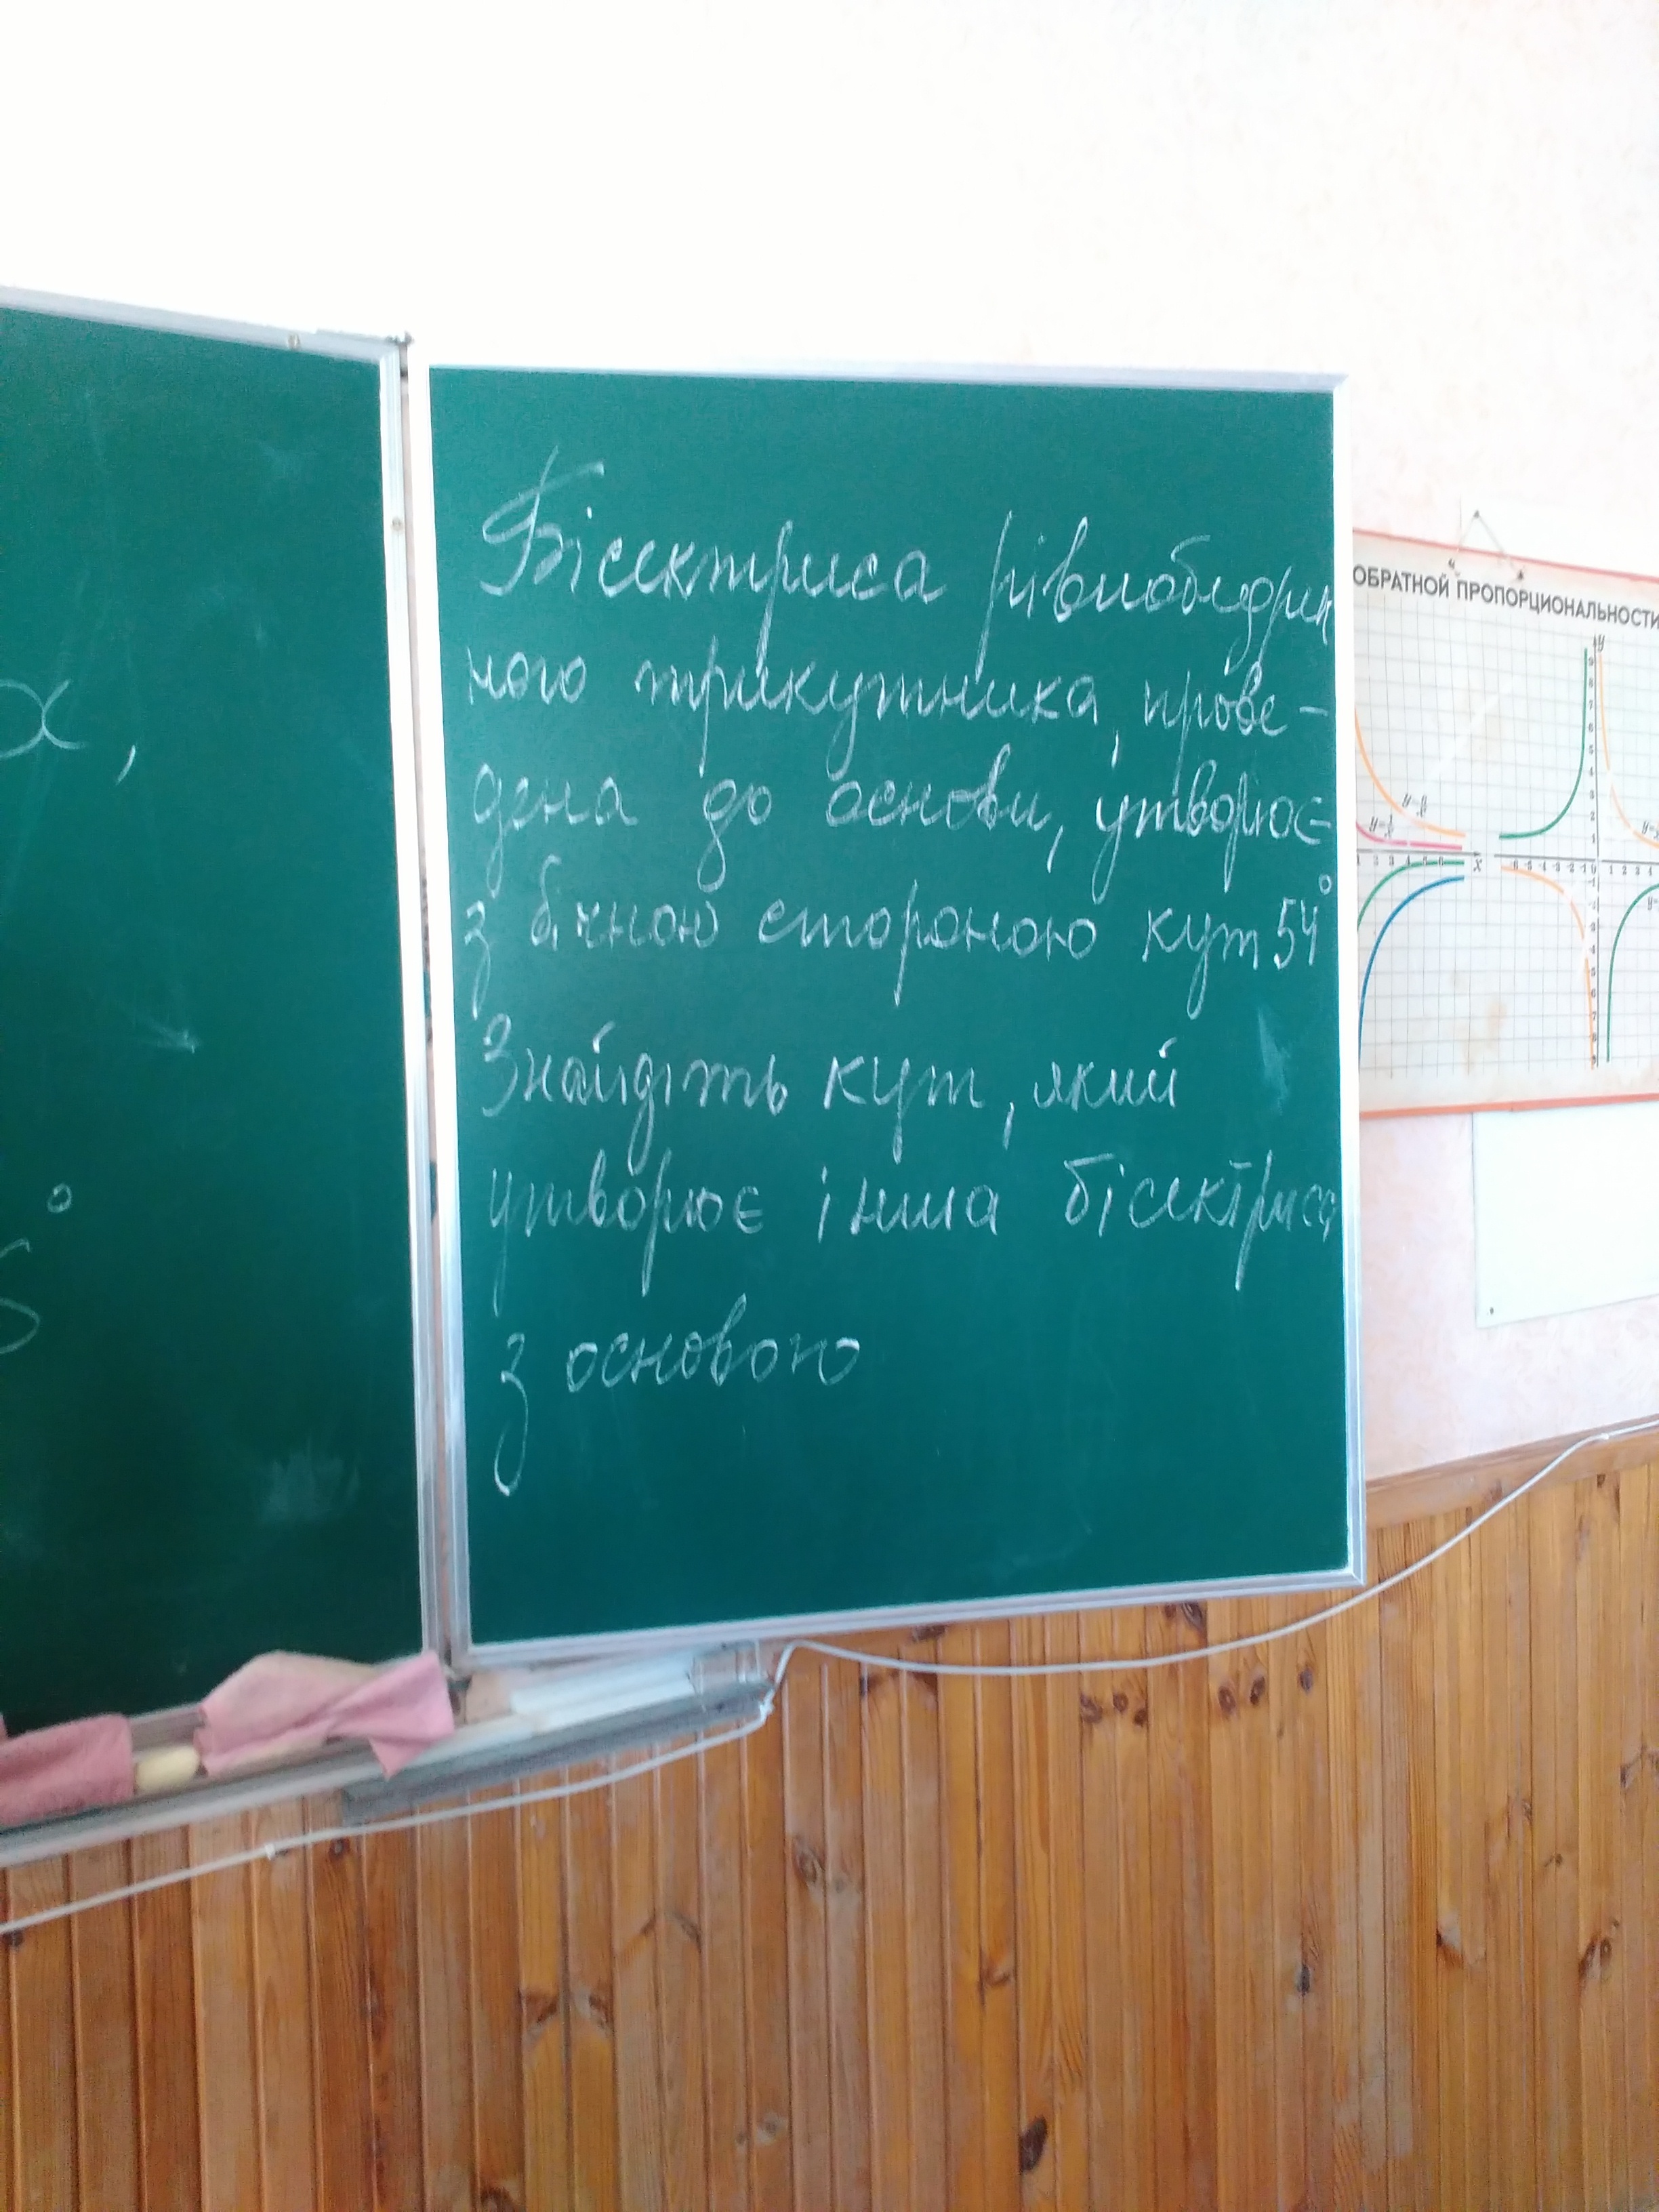 x,
5°
Бісектриса рівнобедрен
ного трикутника, прове-
дена до основи, утворює
з бічною стороною кут 54°
Знайдіть кут, який
утворює інша бісектриса
з основою
ОБРАТНОЙ ПРОПОРЦИОНАЛЬНОСТИ